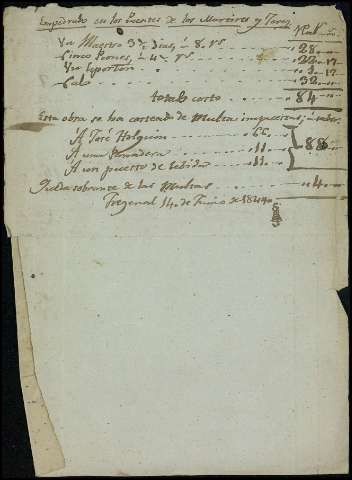 Empedrado en los Puentes de los
Un Maestro 3½ dias, á 8 rs 28 "
Cinco Peones, á 4½ rs 22 17
Un Esporton 1 17
Cal 32 "
total costo 84 "
Esta obra se ha costeado de Multas impuestas, á saber
A José Holguin 66
A una Panadera 11 88
A un puesto de bebidas 11
Queda sobrante de las Multas 4
Fregenal 14 de Junio de 1844